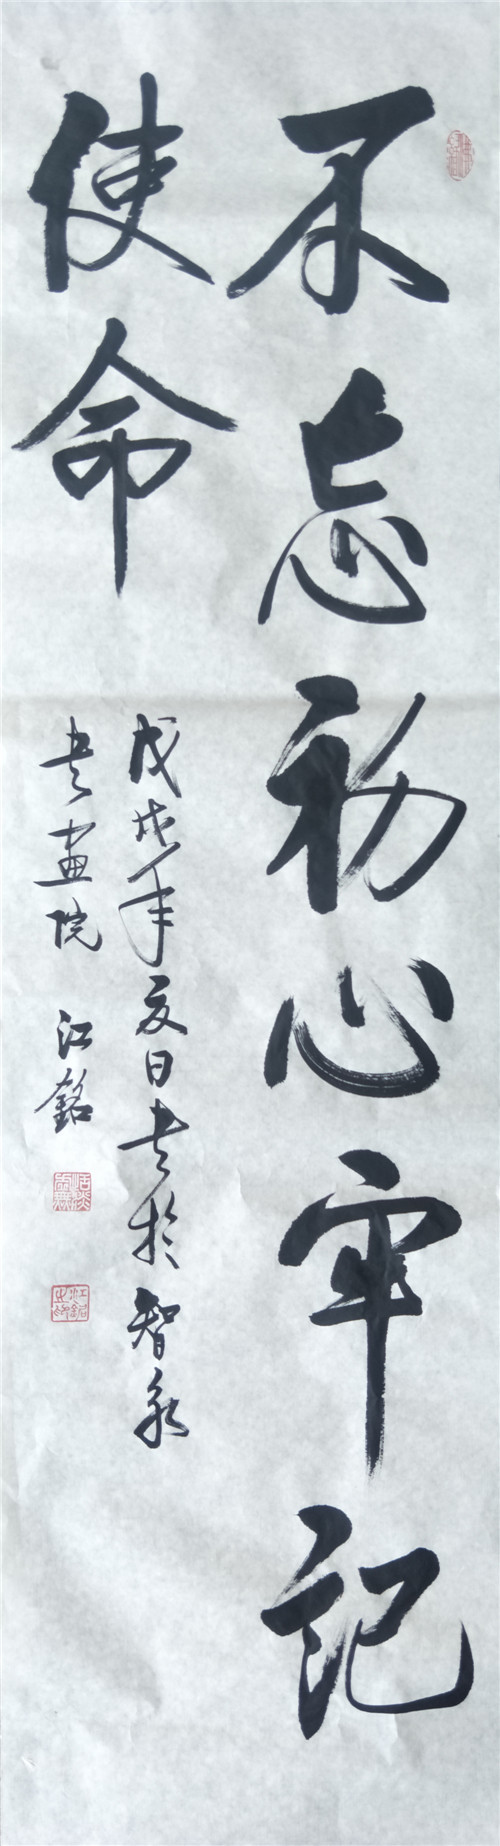 不忘初心牢记
使命
戊戌年夏日书于智永
书画院 江铭
江铭